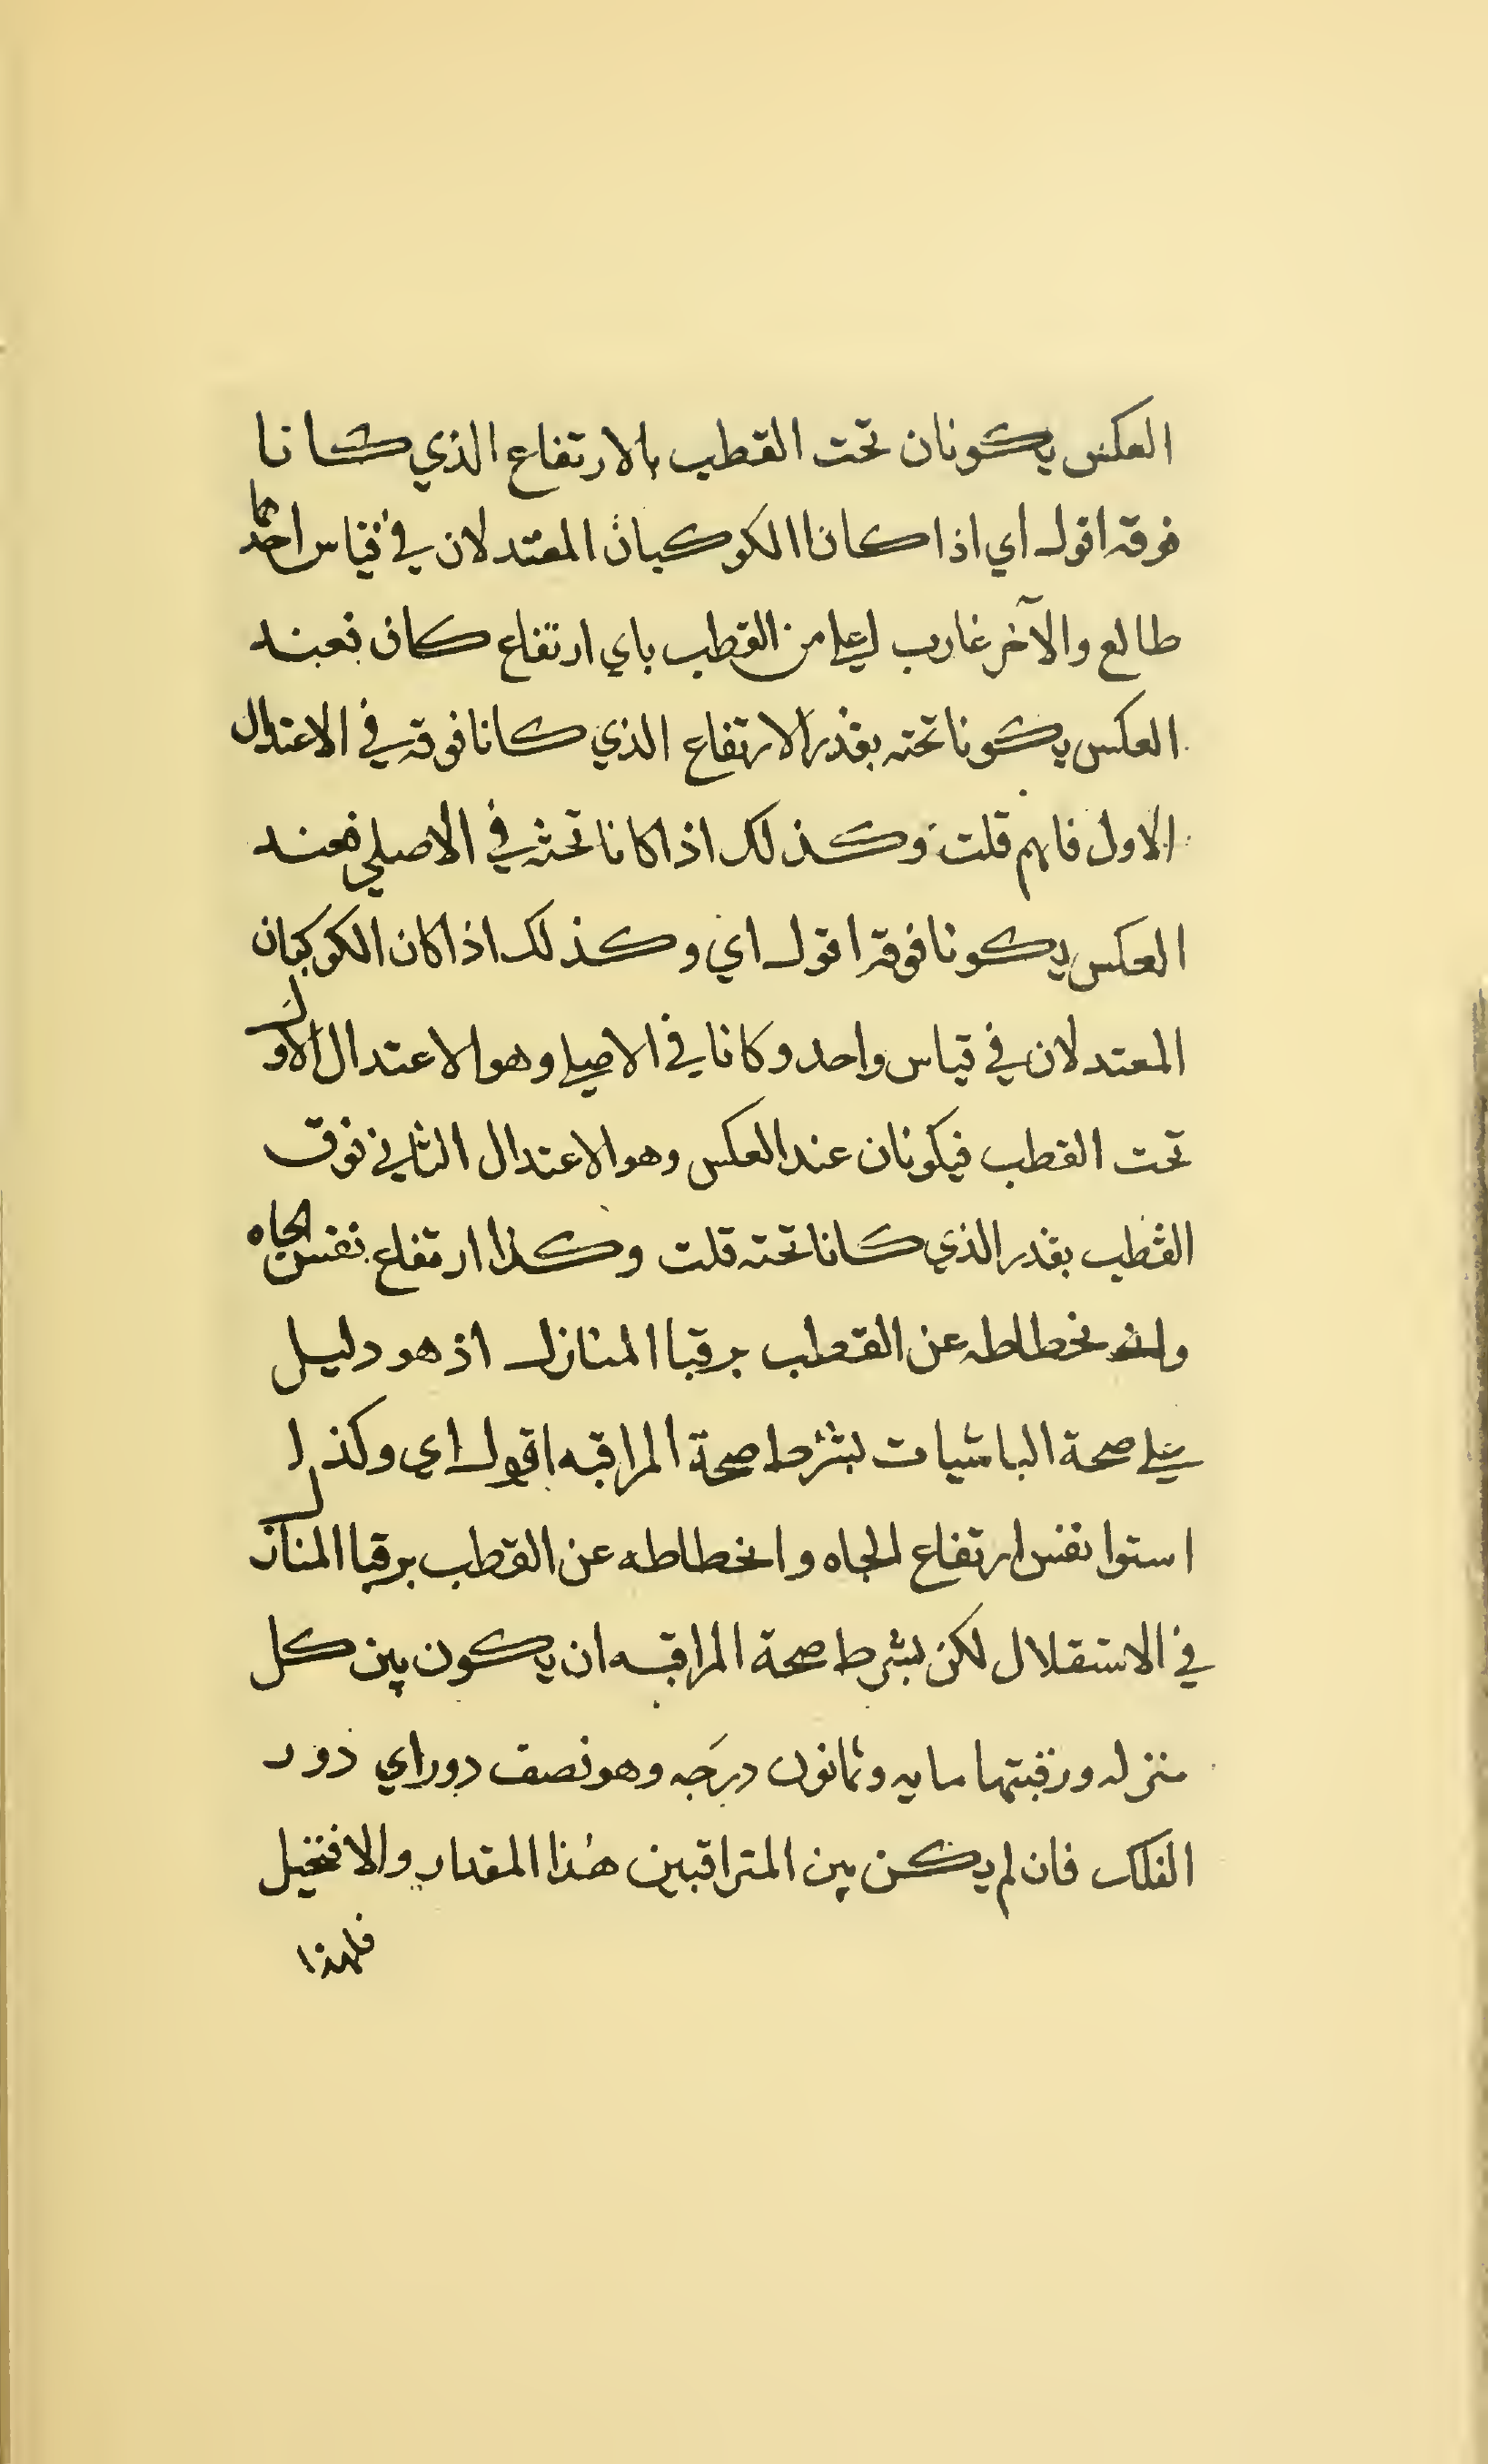 العكس يكونان تحت القطب بالارتفاع الذي كانا
فوقه اقول اي اذا كانا الكوكبان المعتدلان في قياس احدهما
طالع والآخر غارب اعلى من القطب باي ارتفاع كان فعند
العكس يكونا تحته بقدر الارتفاع الذي كانا فوقه في الاعتدال
الاول فافهم قلت وكذلك اذا كانا تحته في الاصلي فعند
العكس يكونا فوقه اقول اي وكذلك اذا كان الكوكبان
المعتدلان في قياس واحد وكانا في الاصلي وهو الاعتدال الاول
تحت القطب فيكونان عند العكس وهو الاعتدال الثاني فوق
القطب بقدر الذي كانا تحته قلت وكذا ارتفاع نفس الجاه
وانخطاطه عن القطب برقبا المنازل اذ هو دليل
على صحة الباشيات بشرط صحة المراقبه اقول اي وكذا
استوا نفس ارتفاع الجاه وانخطاطه عن القطب برقبا المنازل
في الاستقلال لكن بشرط صحة المراقبه ان يكون بين كل
منزله ورقبتها مايه وثمانون درجه وهو نصف دوراي دور
الفلك فان لم يكن بين المتراقبين هذا المقدار والا فتخيل
فلهذا